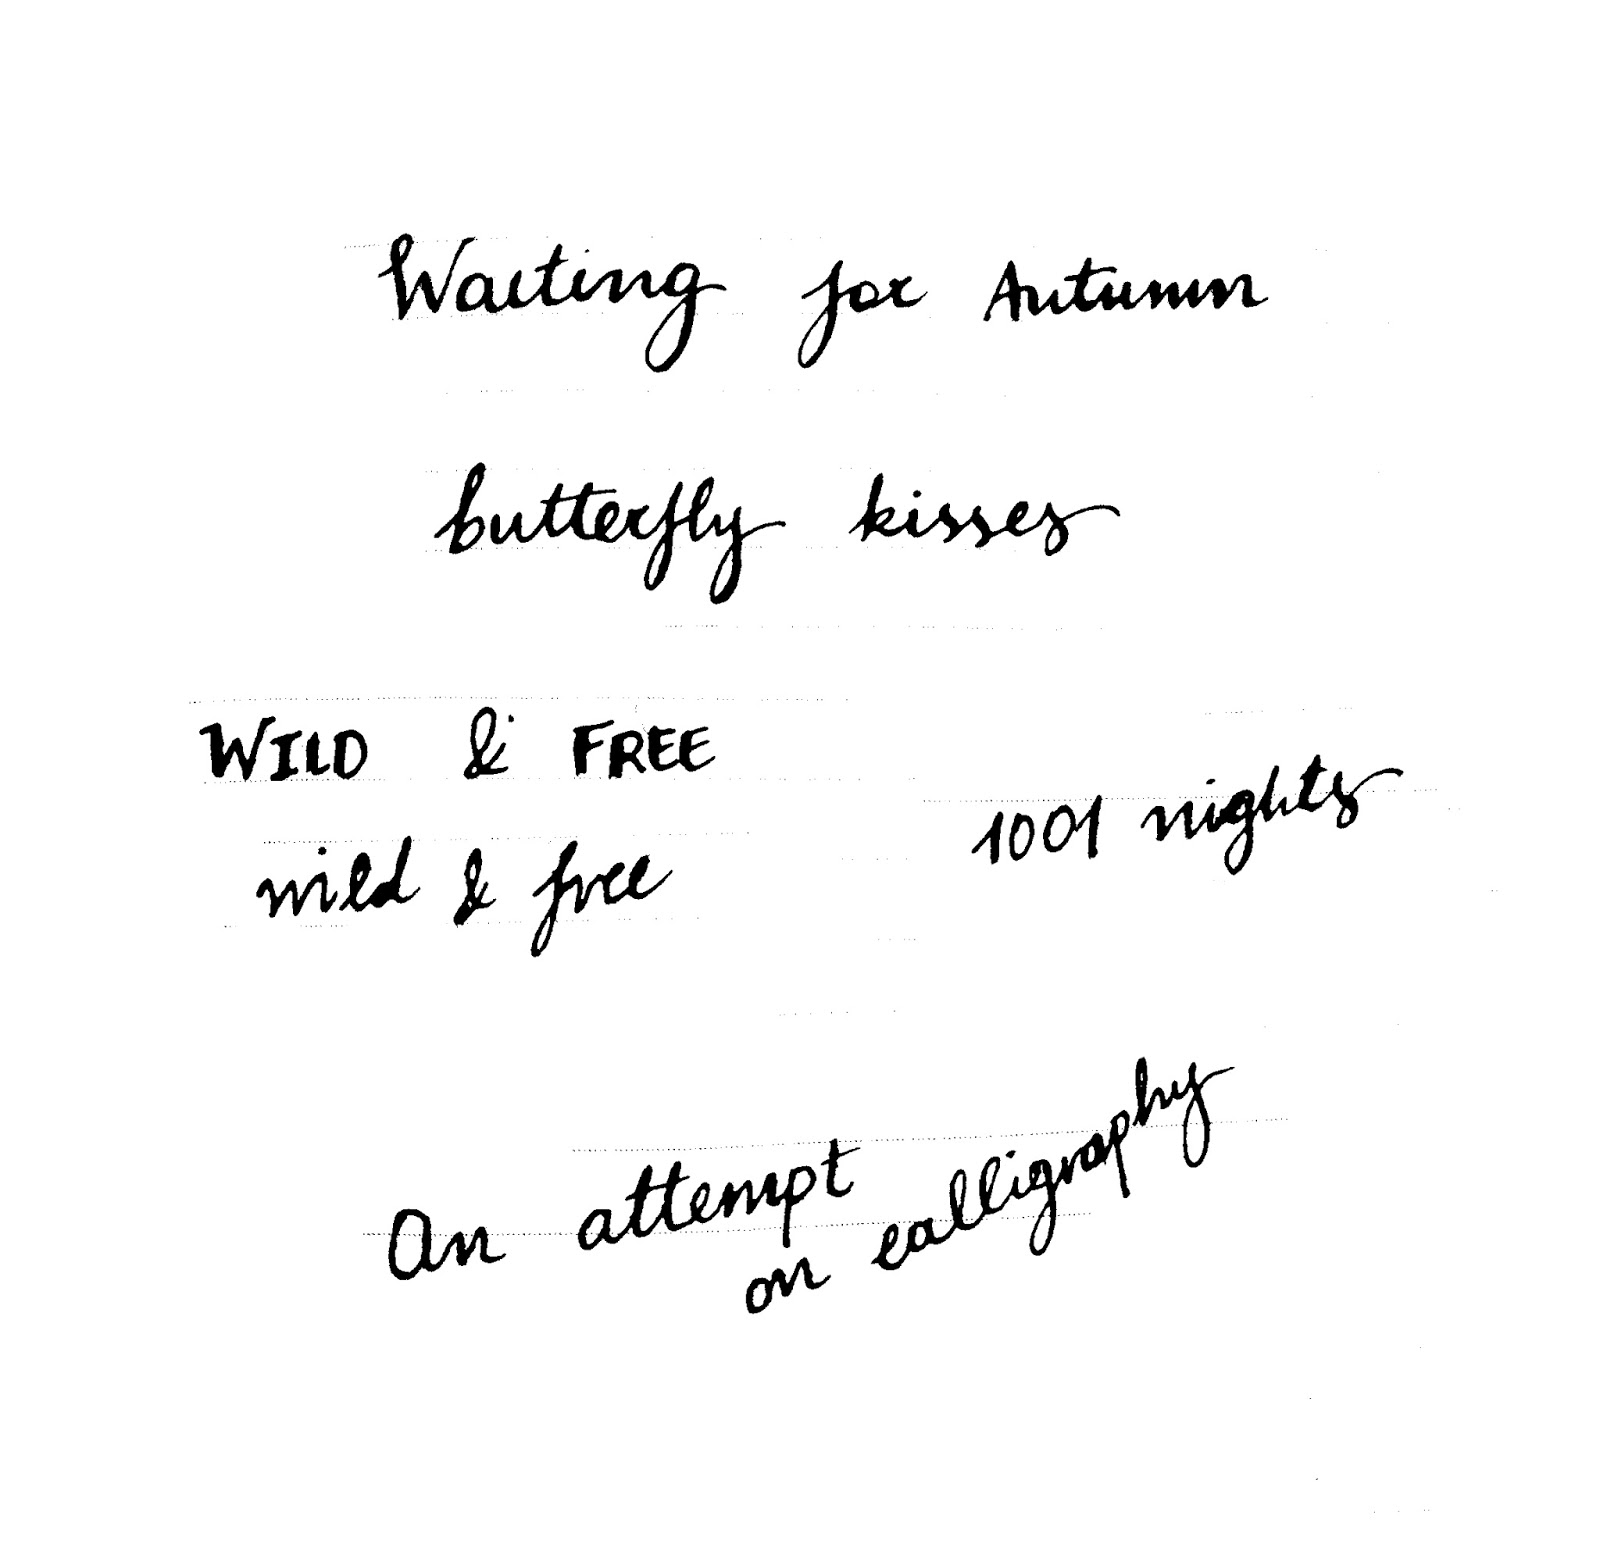 Waiting for Autumn
butterfly kisses
WILD & FREE
1001 nights
wild & free
An attempt
on calligraphy